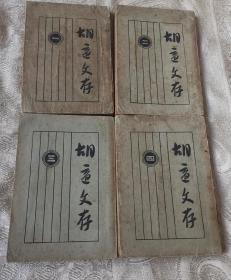 胡适文存
一
胡适文存
二
胡适文存
三
胡适文存
四